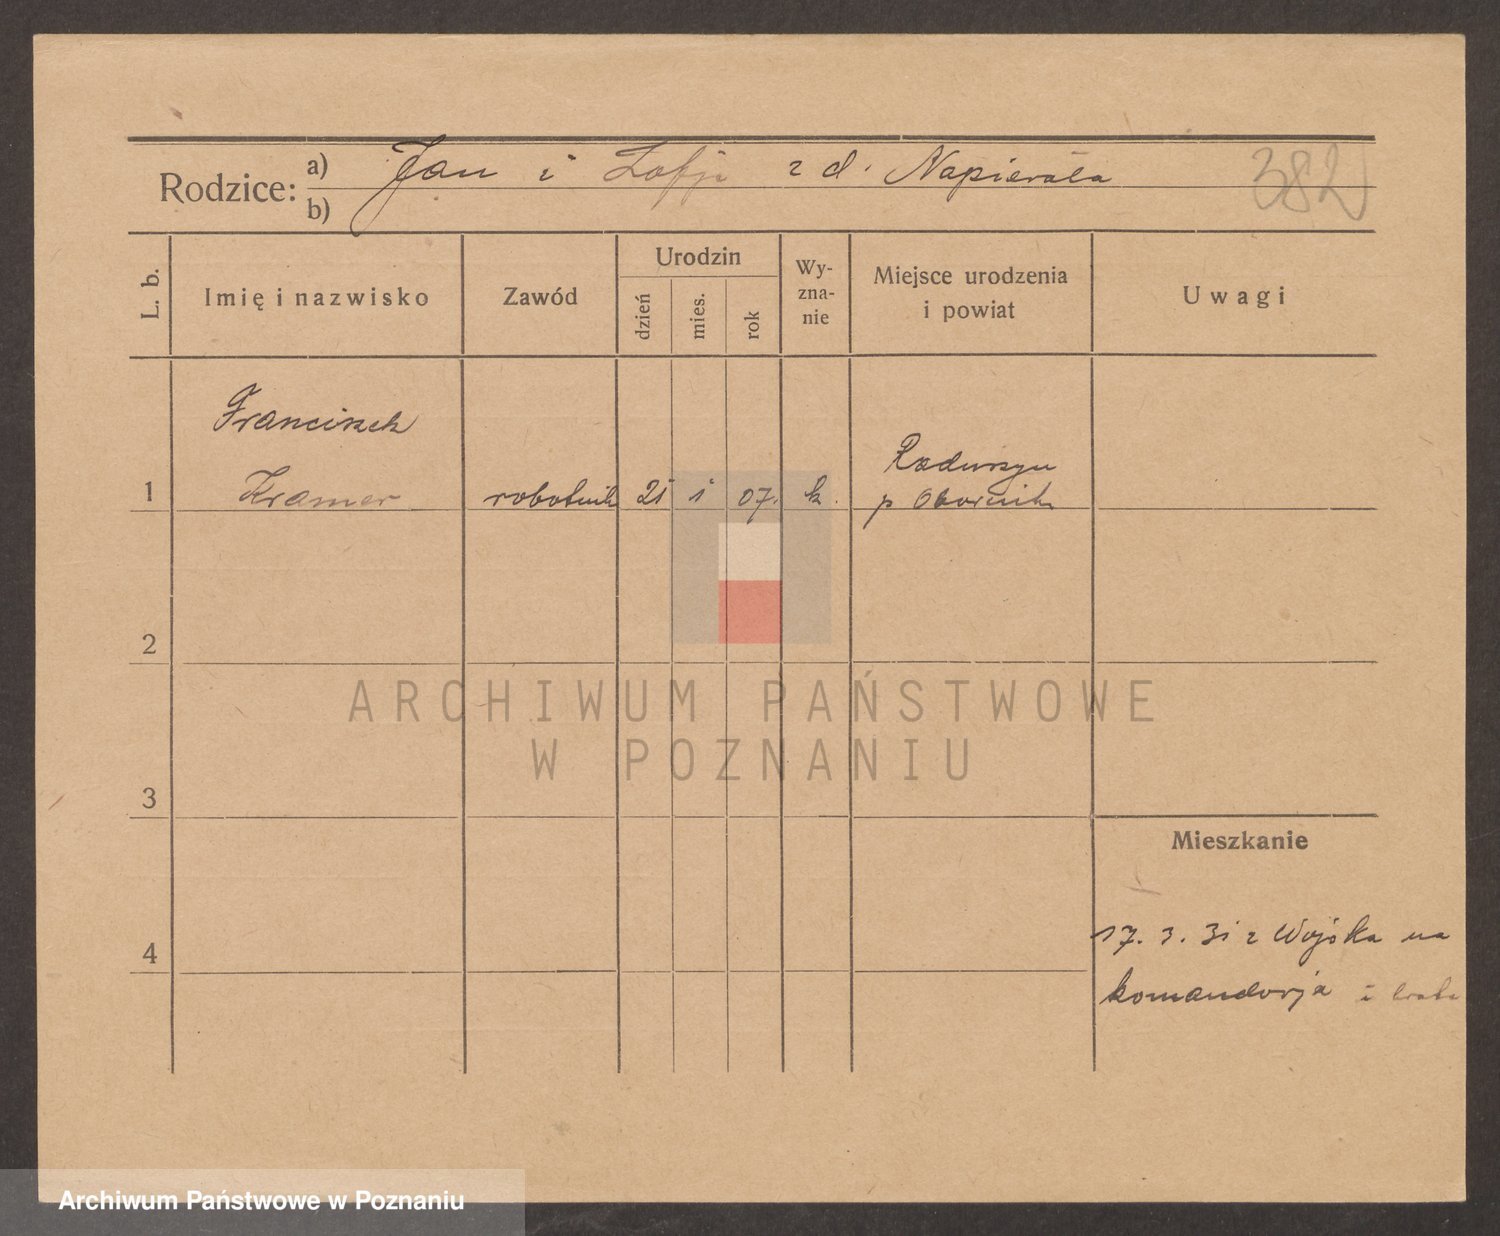 Rodzice: a) Jan i Zofji z d. Napierała 382
b)
L. b. Imię i nazwisko Zawód Urodzin Wy-zna-nie Miejsce urodzenia i powiat Uwagi
dzień mies. rok
Franciszek
1 Kramer robotnik 21 1 07. k. Raduszyn
p Obornik
2
ARCHIWUM PAŃSTWOWE
W POZNANIU
3
Mieszkanie
17. 3. 31 z Wojska na
4
komandorja i
Archiwum Państwowe w Poznaniu